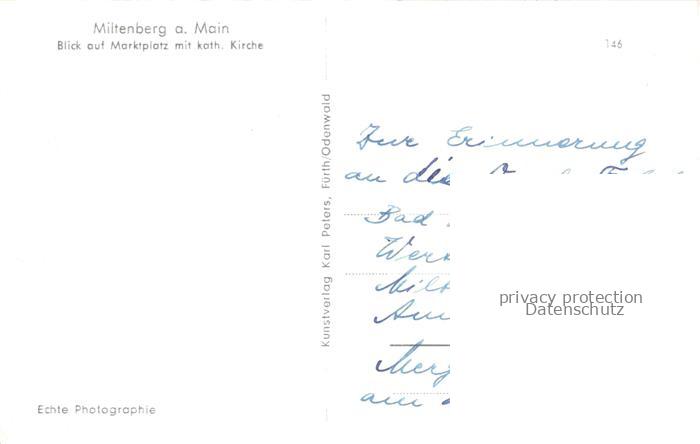 Miltenberg a. Main
Blick auf Marktplatz mit kath. Kirche
146
Kunstverlag Karl Peters, Fürth/Odenwald
Zur Erinnerung
an die
Bad
am
privacy protection
Datenschutz
Echte Photographie